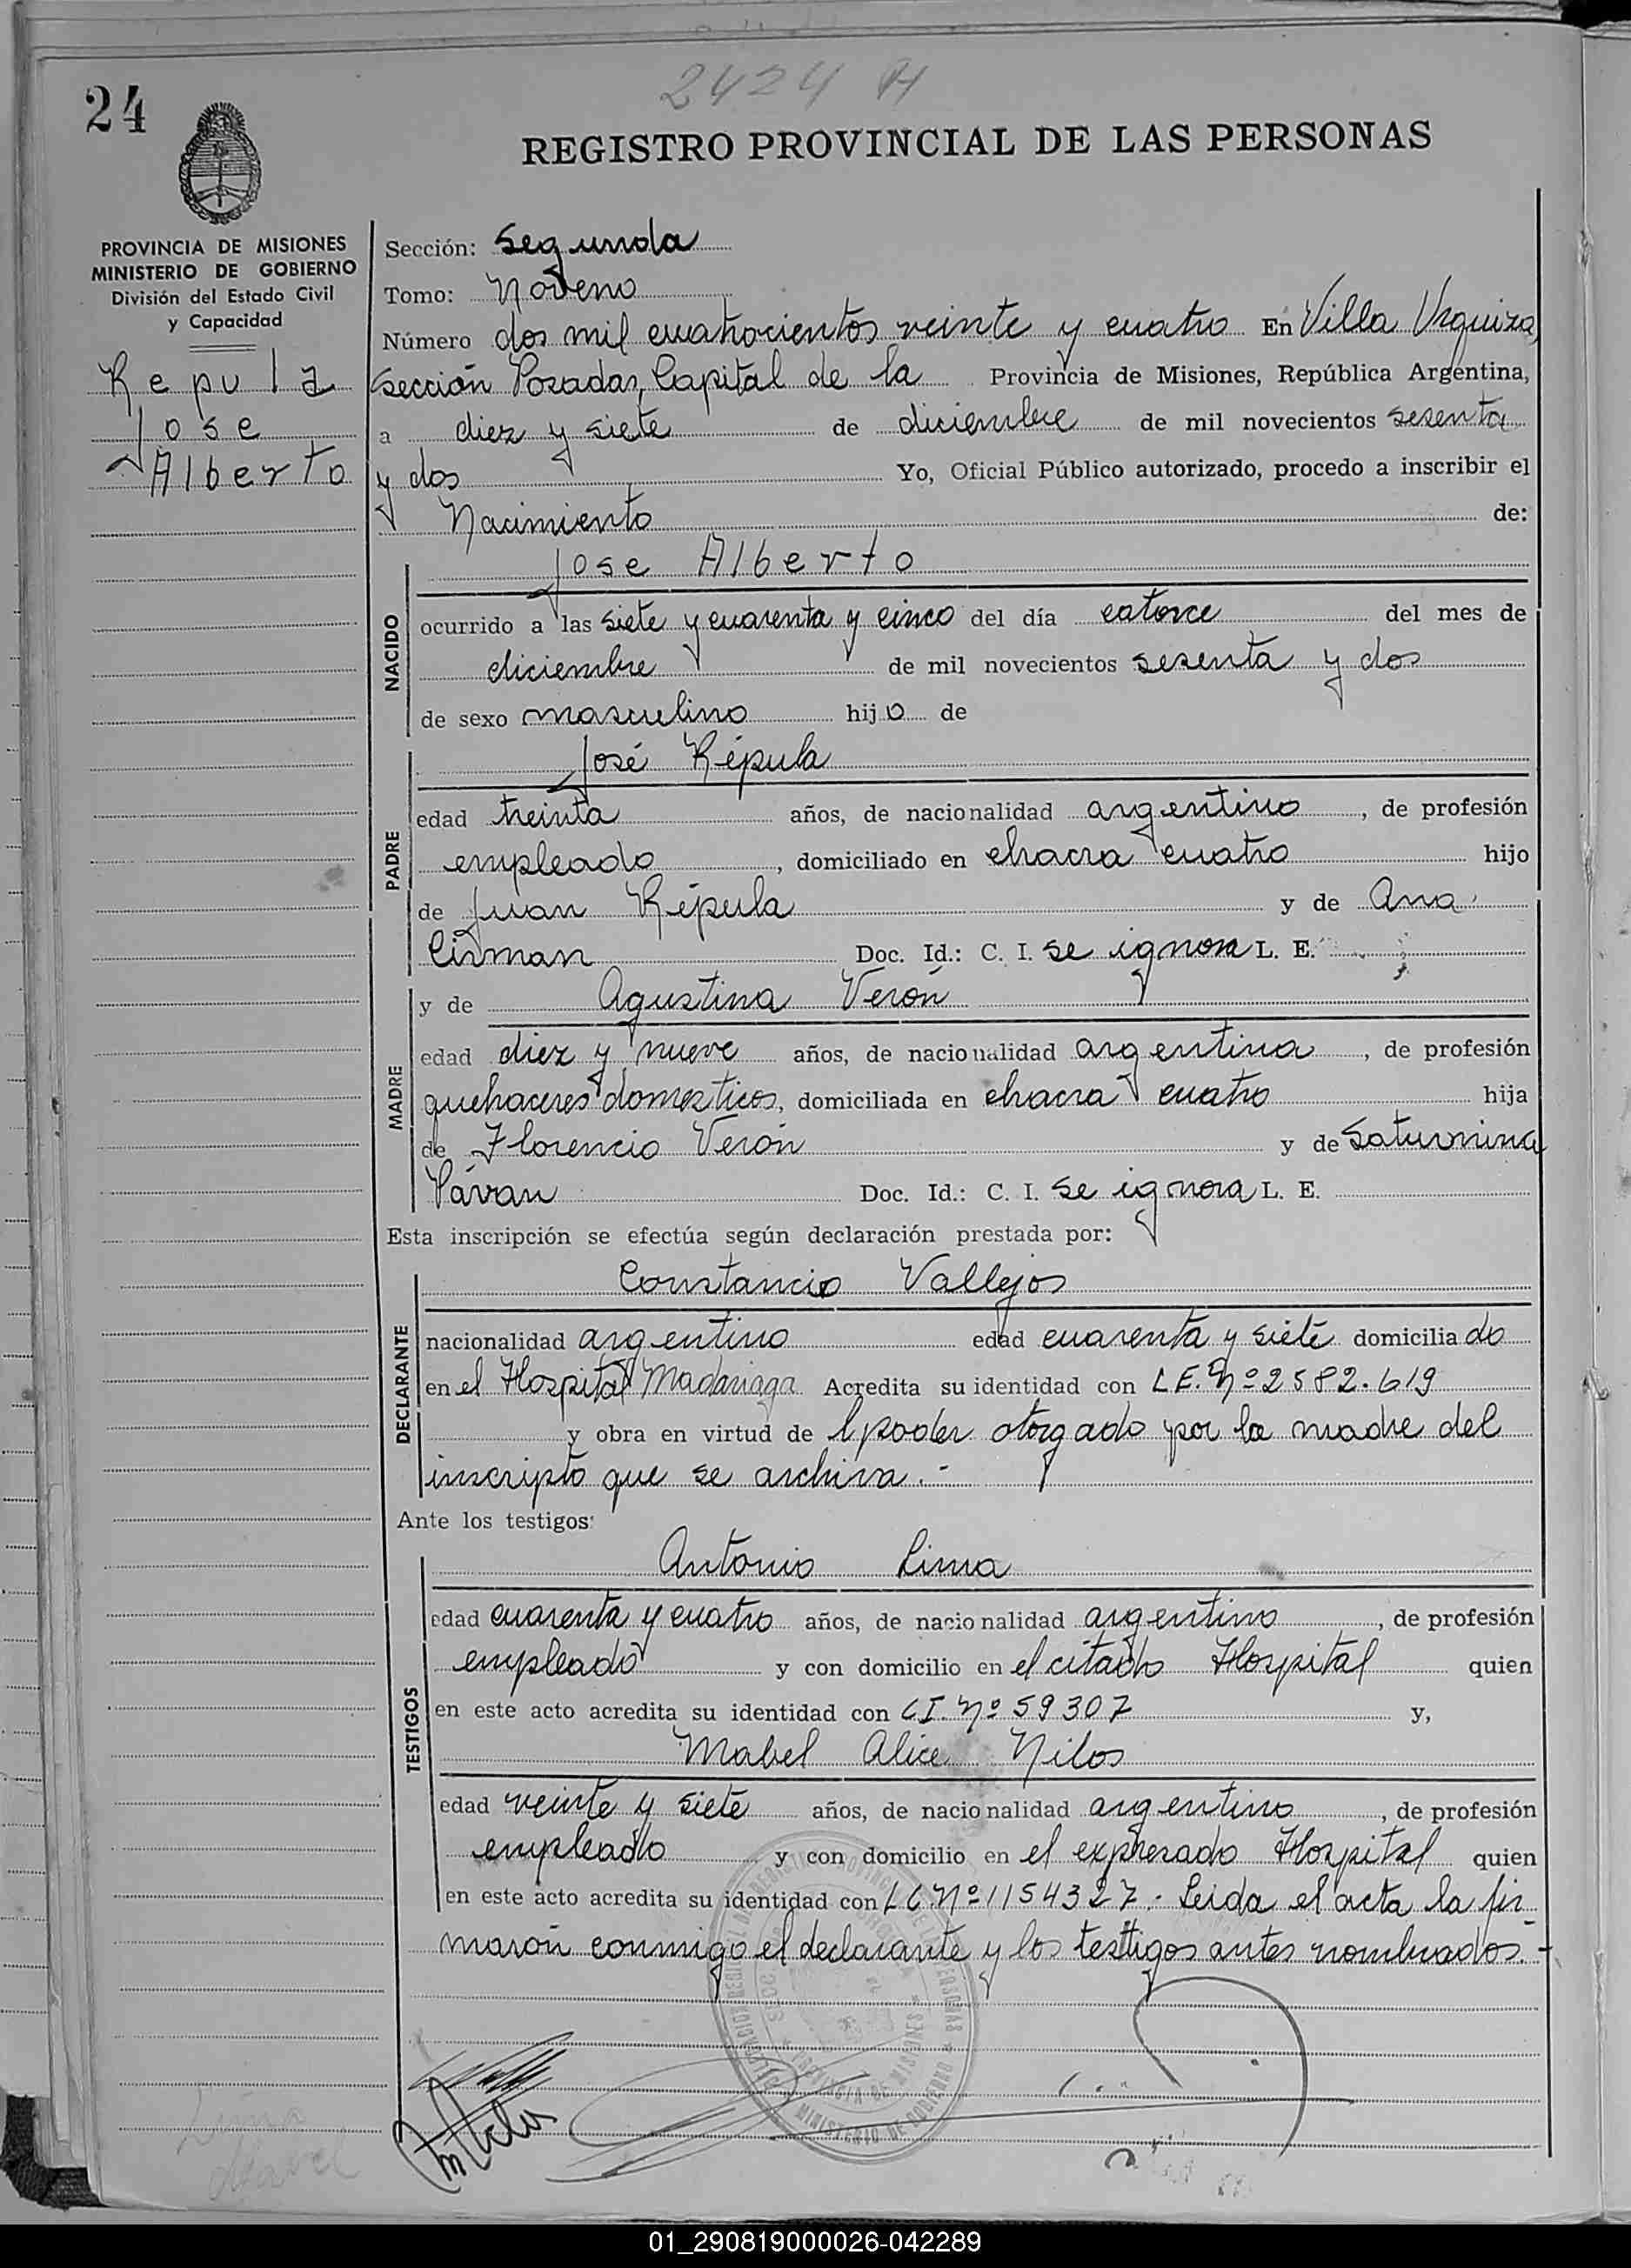 2424 H
24
REGISTRO PROVINCIAL DE LAS PERSONAS
PROVINCIA DE MISIONES
MINISTERIO DE GOBIERNO
División del Estado Civil
y Capacidad
Repula
Jose
Alberto
Sección: Segunda
Tomo: Noveno
Número dos mil cuatrocientos veinte y cuatro En Villa Urquiza,
sección Posadas, Capital de la Provincia de Misiones, República Argentina,
a diez y siete de diciembre de mil novecientos sesenta
y dos Yo, Oficial Público autorizado, procedo a inscribir el
Nacimiento de:
Jose Alberto
NACIDO
ocurrido a las siete y cuarenta y cinco del día catorce del mes de
diciembre de mil novecientos sesenta y dos
de sexo masculino hijo de
José Répula
PADRE
edad treinta años, de nacionalidad argentino, de profesión
empleado, domiciliado en chacra cuatro hijo
de Juan Répula y de Ana
Cirman Doc. Id.: C. I. se ignora L. E.
y de Agustina Verón
MADRE
edad diez y nueve años, de nacionalidad argentina, de profesión
quehaceres domesticos, domiciliada en chacra cuatro hija
de Florencio Verón y de Saturnina
Pávan Doc. Id.: C. I. se ignora L. E.
Esta inscripción se efectúa según declaración prestada por:
Constancio Vallejos
DECLARANTE
nacionalidad argentino edad cuarenta y siete domiciliado
en el Hospital Madariaga Acredita su identidad con L.E. Nº 2582.619
y obra en virtud de l poder otorgado por la madre del
inscripto que se archiva.-
Ante los testigos:
Antonio Lima
TESTIGOS
edad cuarenta y cuatro años, de nacionalidad argentino, de profesión
empleado y con domicilio en el citado Hospital quien
en este acto acredita su identidad con C.I. Nº 59307 y,
Mabel Alice Nilos
edad veinte y siete años, de nacionalidad argentino, de profesión
empleado y con domicilio en el expresado Hospital quien
en este acto acredita su identidad con L.C. Nº 1154327. Leida el acta la fir-
maron conmigo el declarante y los testigos antes nombrados.-
MINISTERIO DE GOBIERNO
PROVINCIA DE MISIONES
01_290819000026-042289